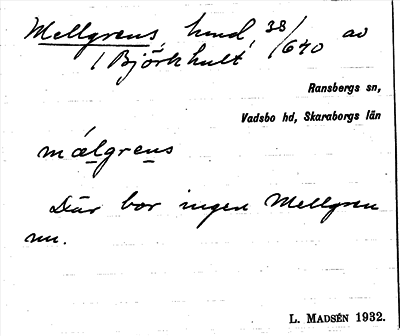 Mellgrens, lund, 38/640 av
1 Björkhult
Ransbergs sn,
Vadsbo hd, Skaraborgs län
mælgrens
Där bor ingen Mellgren
nu.
L. MADSÉN 1932.